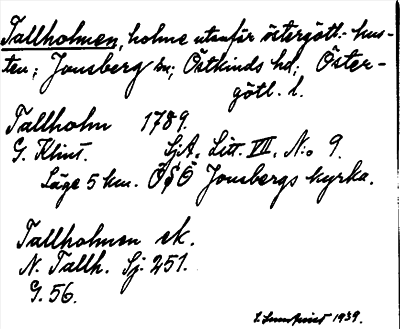 Tallholmen, holme utanför östergötl. kus-
ten; Jonsberg sn; Östkinds hd; Öster-
götl. l.
Tallholm 1789.
G. Klint. SjA. Litt. VII. N:o 9.
Läge 5 km. ÖSÖ Jonsbergs kyrka.
Tallholmen ek.
N. Tallh. Sj. 251.
G. 56.
1939.